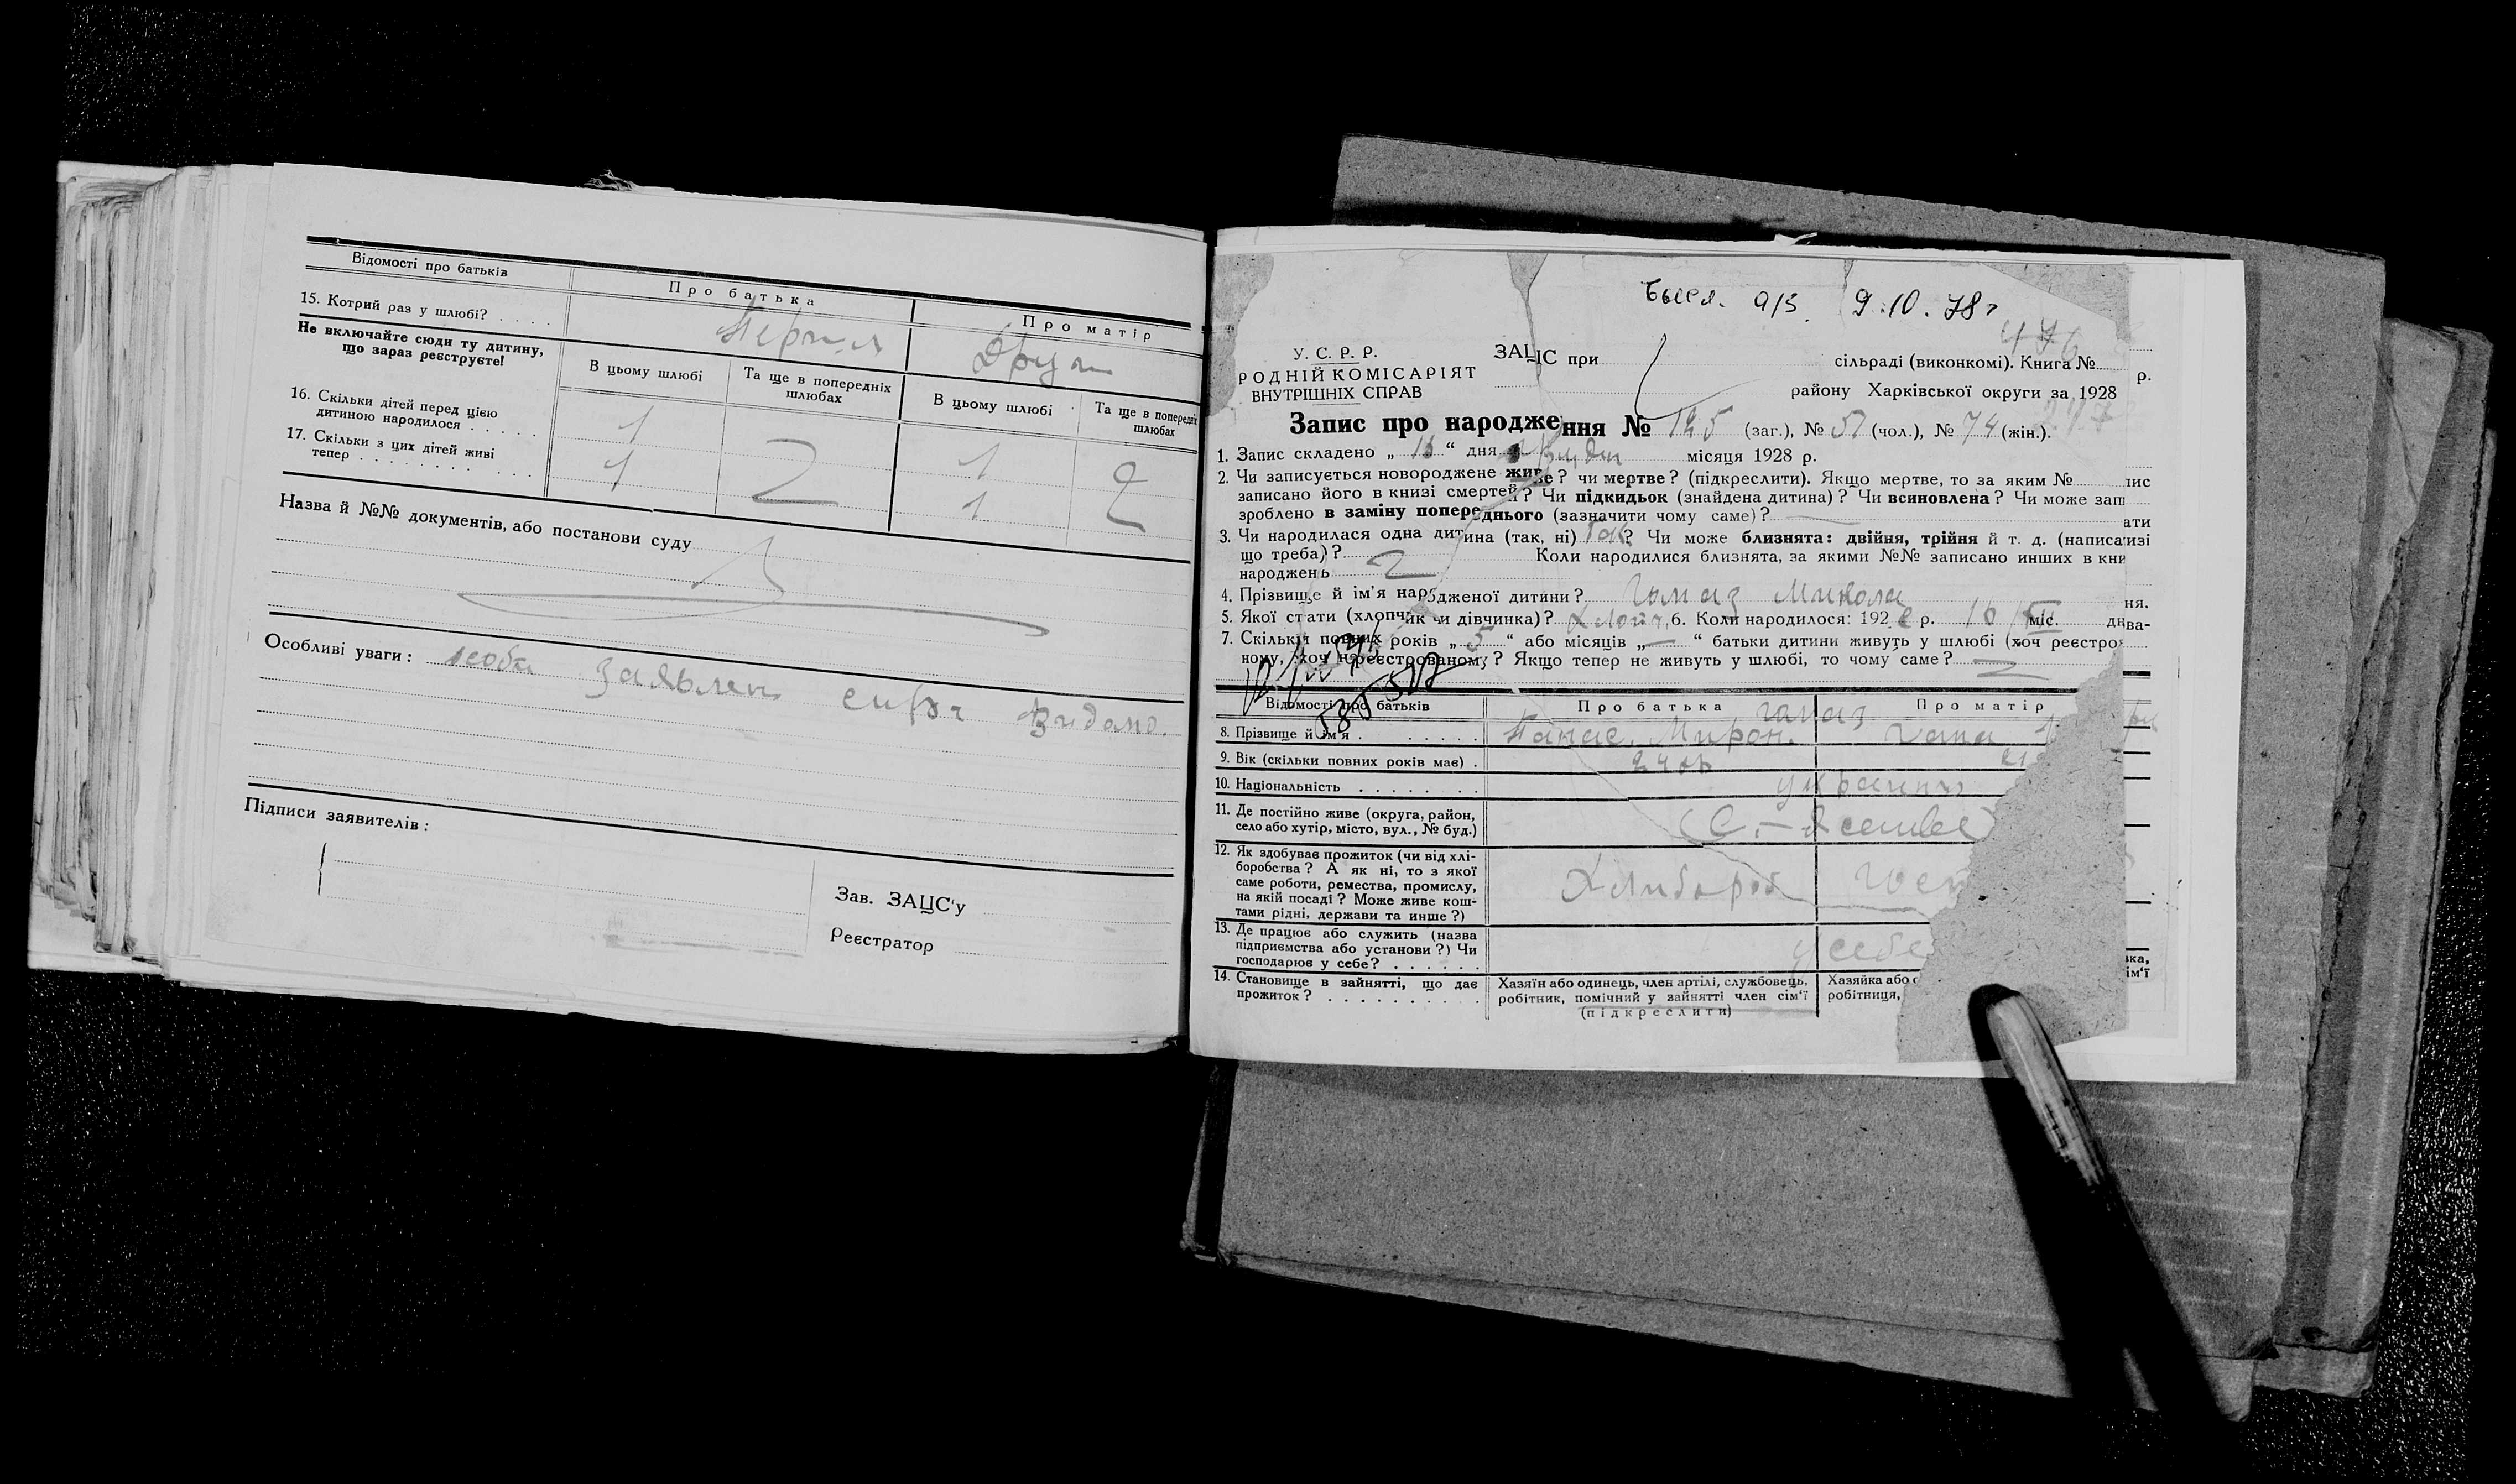 Відомості про батьків
Про батька
Про матір
15. Котрий раз у шлюбі? . . . .
Не включайте сюди ту дитину,
що зараз реєструєте!
В цьому шлюбі
Та ще в попередніх
шлюбах
В цьому шлюбі
Та ще в попередніх
шлюбах
16. Скільки дітей перед цією
дитиною народилося . . . . .
1
1
2
17. Скільки з цих дітей живі
тепер . . . . . . . . . . .
1
1
Назва й №№ документів, або постанови суду
Особливі уваги:
Підписи заявителів:
Зав. ЗАЦС'у
Реєстратор
9.10.78
476
У. С. Р. Р.
РОДНІЙ КОМІСАРІЯТ
ВНУТРІШНІХ СПРАВ
ЗАЦІС при
сільраді (виконкомі). Книга №
р.
району Харківської округи за 1928
Запис про народження № 125 (заг.), № 51 (чол.), № 74 (жін.).
1. Запис складено „ “ дня місяця 1928 р.
2. Чи записується новороджене живе? чи мертве? (підкреслити). Якщо мертве, то за яким №
записано його в книзі смертей? Чи підкидьок (знайдена дитина)? Чи всиновлена? Чи може запис
зроблено в заміну попереднього (зазначити чому саме)?
3. Чи народилася одна дитина (так, ні) Так? Чи може близнята: двійня, трійня й т. д. (написати
що треба)? Коли народилися близнята, за якими №№ записано инших в книзі
народжень
4. Прізвище й ім'я народженої дитини? Гамаз Микола
5. Якої статі (хлопчик чи дівчинка)? Хлопч. 6. Коли народилося: 192 р. 16 XII міс. дня.
7. Скільки повних років „ 5 “ або місяців „ — “ батьки дитини живуть у шлюбі (хоч реєстрова-
ному, хоч нереєстрованому)? Якщо тепер не живуть у шлюбі, то чому саме?
Відомості про батьків
Про батька
Про матір
Гамаз
8. Прізвище й ім'я . . . . . .
Панас. Мирон.
9. Вік (скільки повних років має) .
24
10. Національність . . . . . . . .
11. Де постійно живе (округа, район,
село або хутір, місто, вул., № буд.)
12. Як здобуває прожиток (чи від хлі-
боробства? А як ні, то з якої
саме роботи, ремества, промислу,
на якій посаді? Може живе кош-
тами рідні, держави та инше?)
Хлибороб
13. Де працює або служить (назва
підприємства або установи?) Чи
господарює у себе? . . . . . .
у себе
14. Становище в зайнятті, що дає
прожиток? . . . . . . . . . .
Хазяїн або одинець, член артілі, службовець,
робітник, помічний у зайнятті член сім'ї
(підкреслити)
Хазяйка або
робітниця,